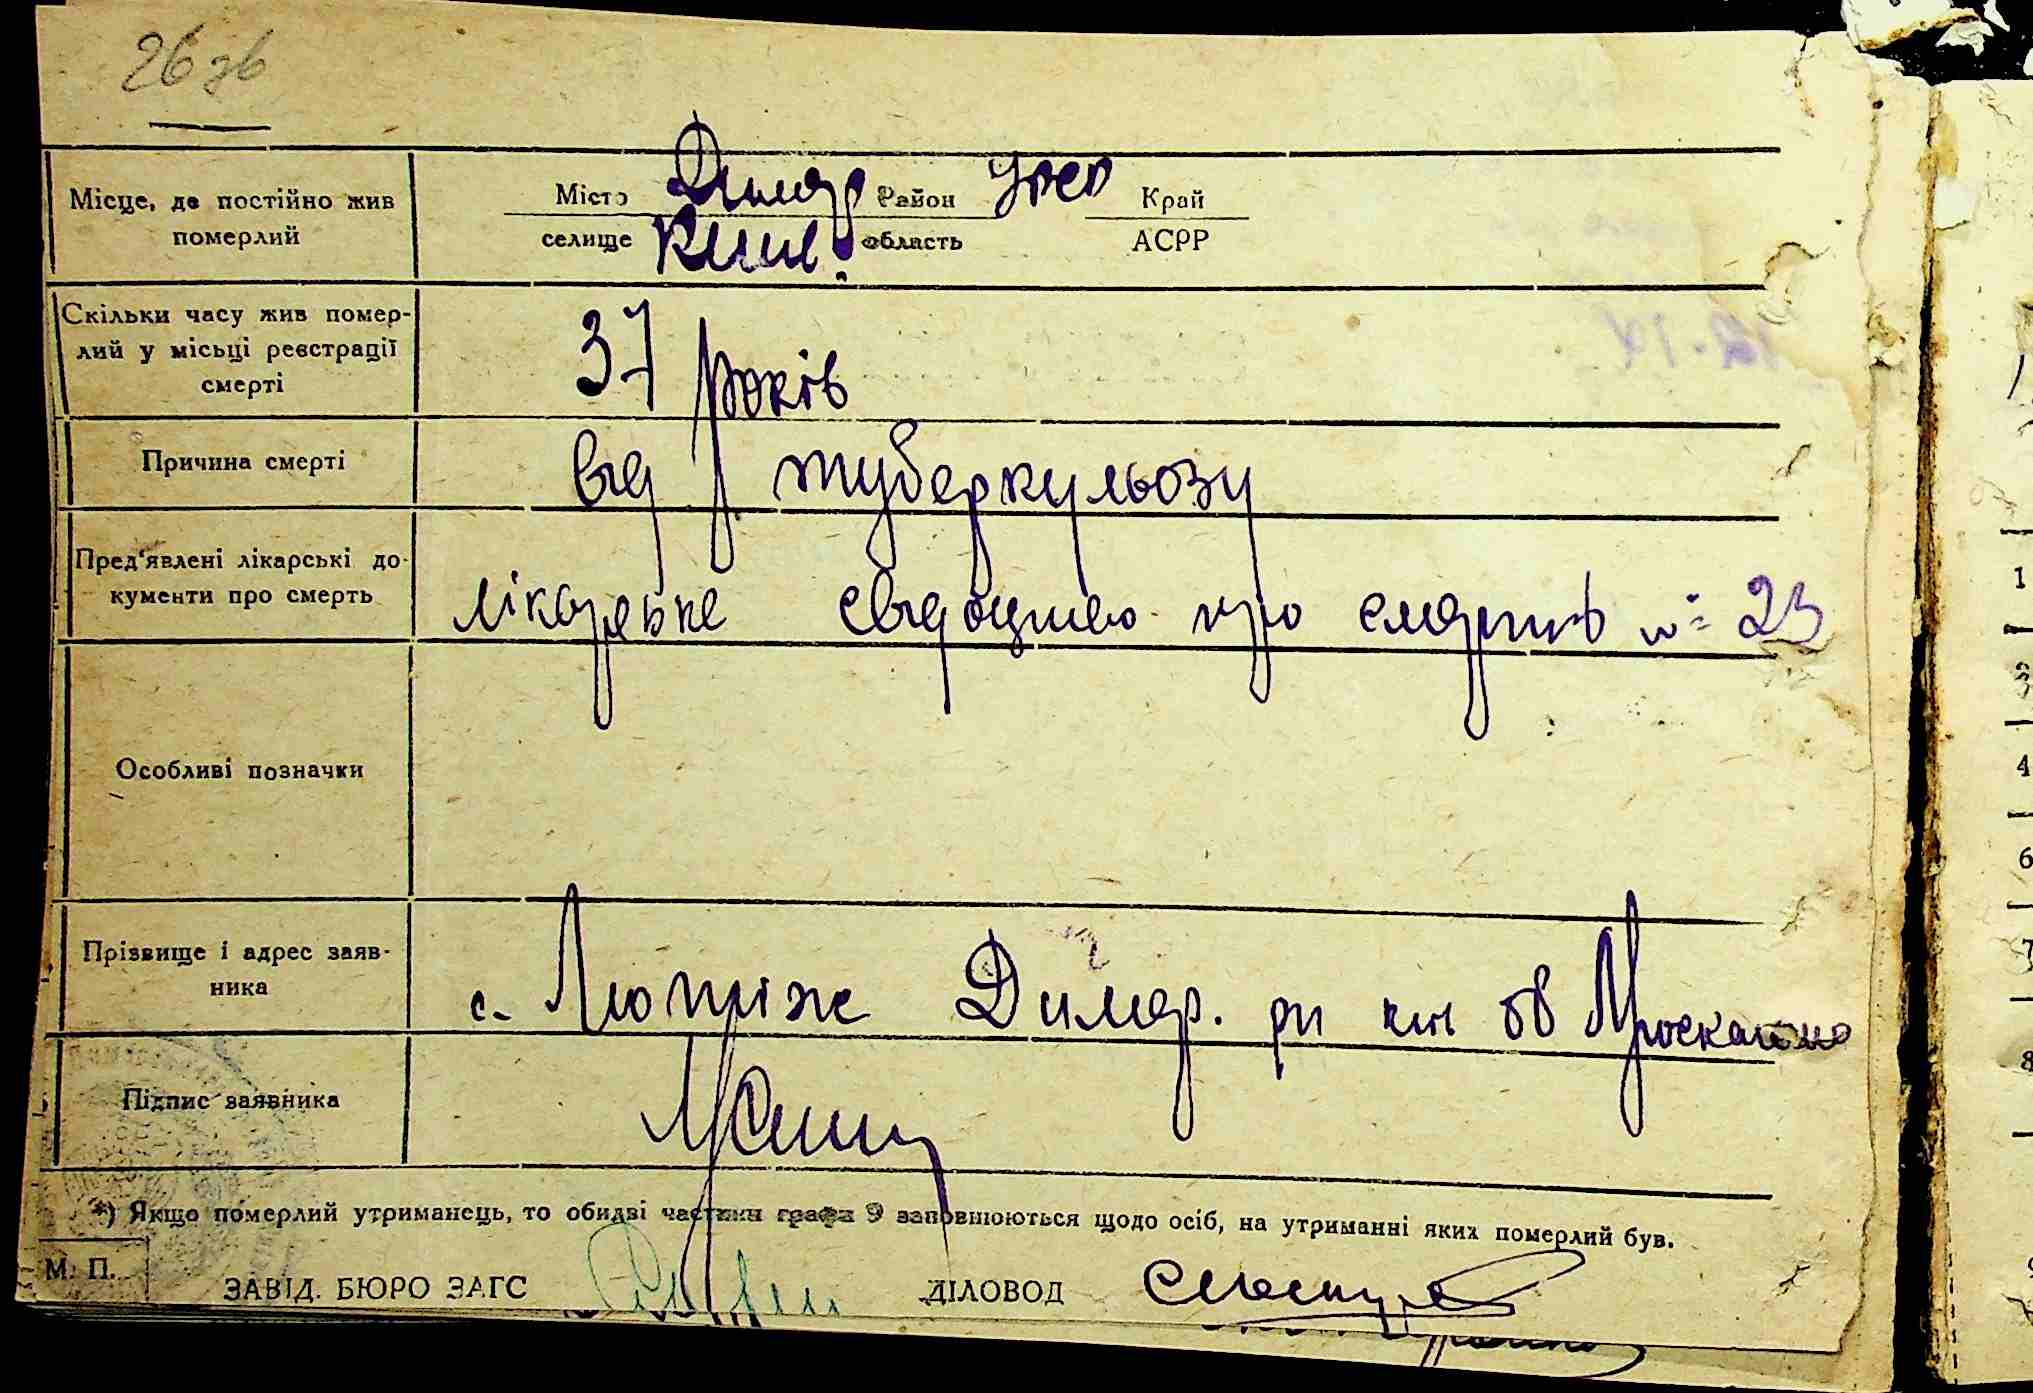 26 зв
Місце, де постійно жив
померлий
Місто Димер Район УРСР Край
селище Київ. область АСРР
Скільки часу жив помер-
лий у місьці реєстрації
смерті
37 років
Причина смерті
від туберкульозу
Пред'явлені лікарські до-
кументи про смерть
лікарське свідоцтво про смерть № 23
Особливі позначки
Прізвище і адрес заяв-
ника
с. Лютіж Димер. рн киї об
Підпис заявника
*) Якщо померлий утриманець, то обидві частини графи 9 заповнюються щодо осіб, на утриманні яких померлий був.
М. П.
ЗАВІД. БЮРО ЗАГС ДІЛОВОД
1
4
6
7
8